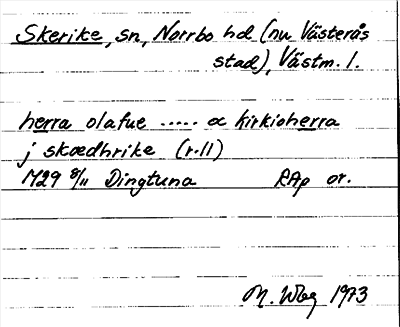 Skerike, sn, Norrbo hd (nu Västerås
stad), Västm. l.
herra olafue ..... oc kirkioherra
j skædhrike (r. 11)
1429 8/11 Dingtuna RAp or.
M. Wbg 1973